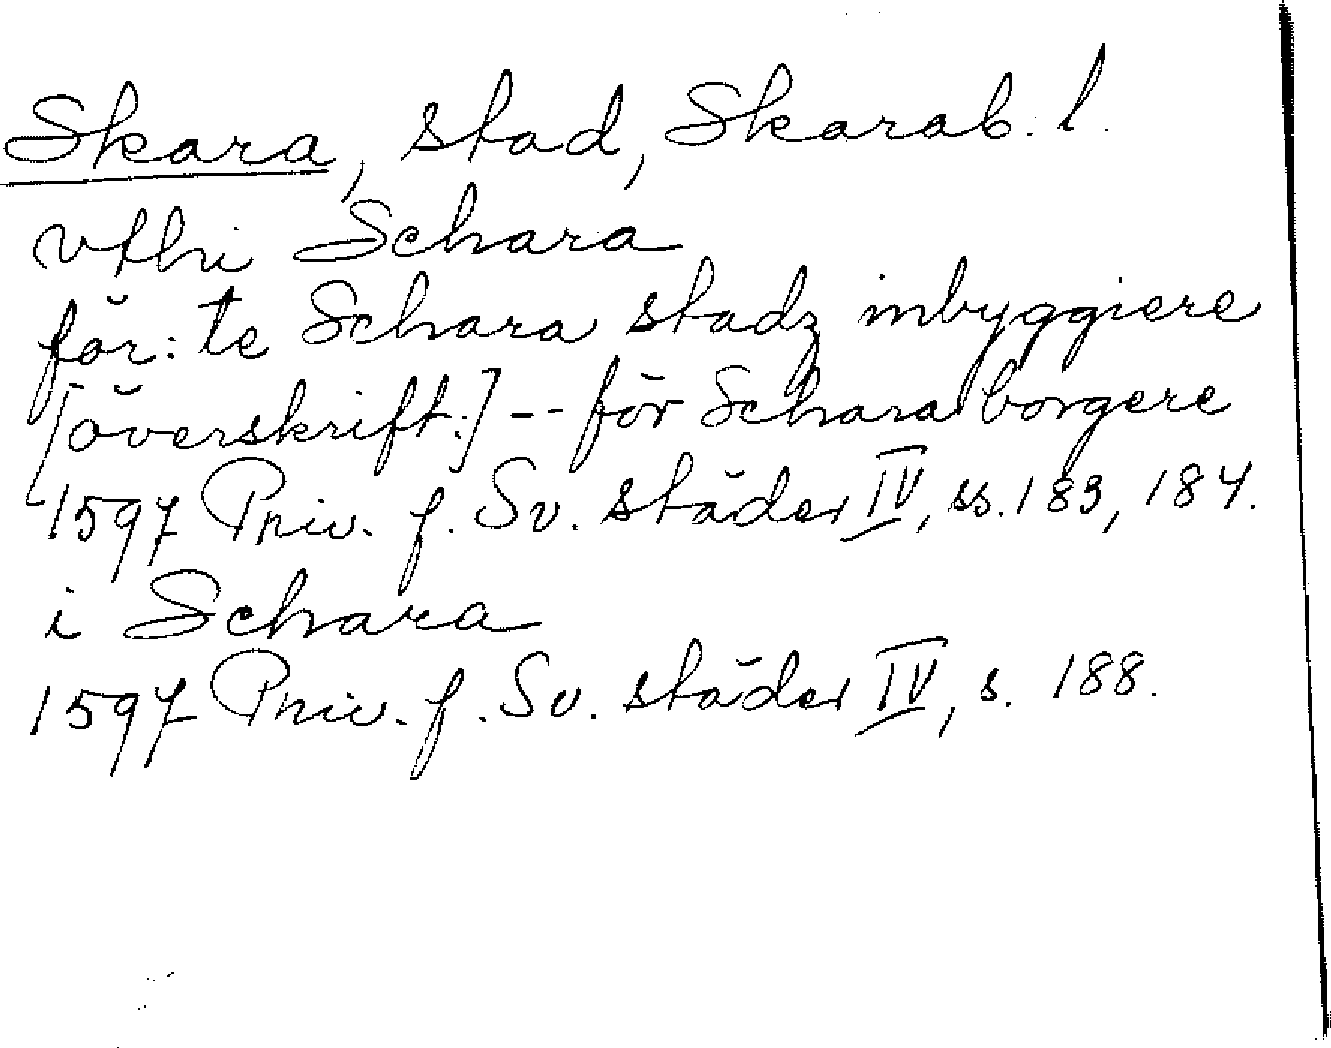 Skara, stad, Skarab. l.
vthi Schara
för: te Schara stadz inbyggiere
[överskrift:] -- för Schara borgere
1597 Priv. f. Sv. städer IV, ss. 183, 184.
i Schara
1597 Priv. f. Sv. städer IV, s. 188.